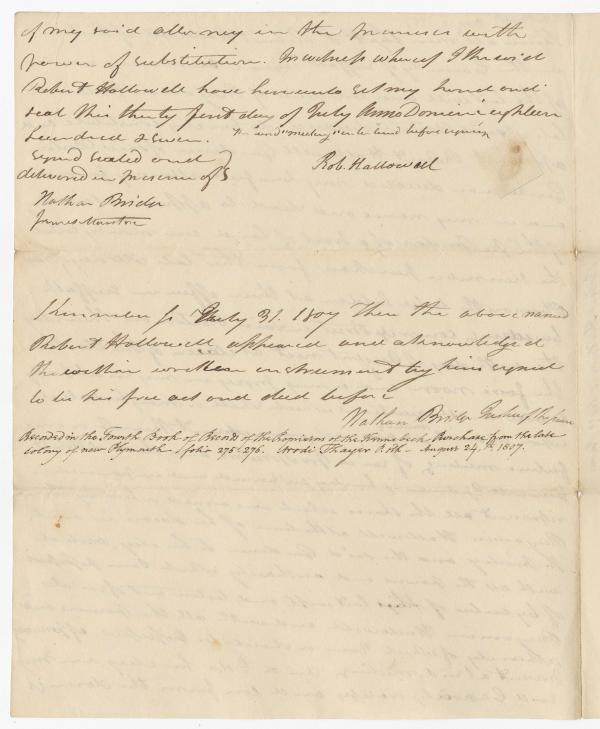 of my said attorney in the Premises with
power of substitution. In witness whereof I the said
Robert Hallowell have hereunto set my hand and
seal this thirty first day of July Anno Domini eighteen
hundred & seven. The word "meeting" interlined before signing
signed sealed and
delivered in presence of
Rob. Hallowell
Nathan Bridge
James
Kennebec ss July 31. 1807 Then the above named
Robert Hallowell appeared and acknowledged
the within written instrument by him signed
to be his free act and deed before
Nathan Bridge Justice of the peace
Recorded in the Fourth Book of Records of the Proprietors of the Kennebeck Purchase from the late
Colony of new Plymouth folio 275 & 276. Arodi Thayer Clk - August 24th. 1807.